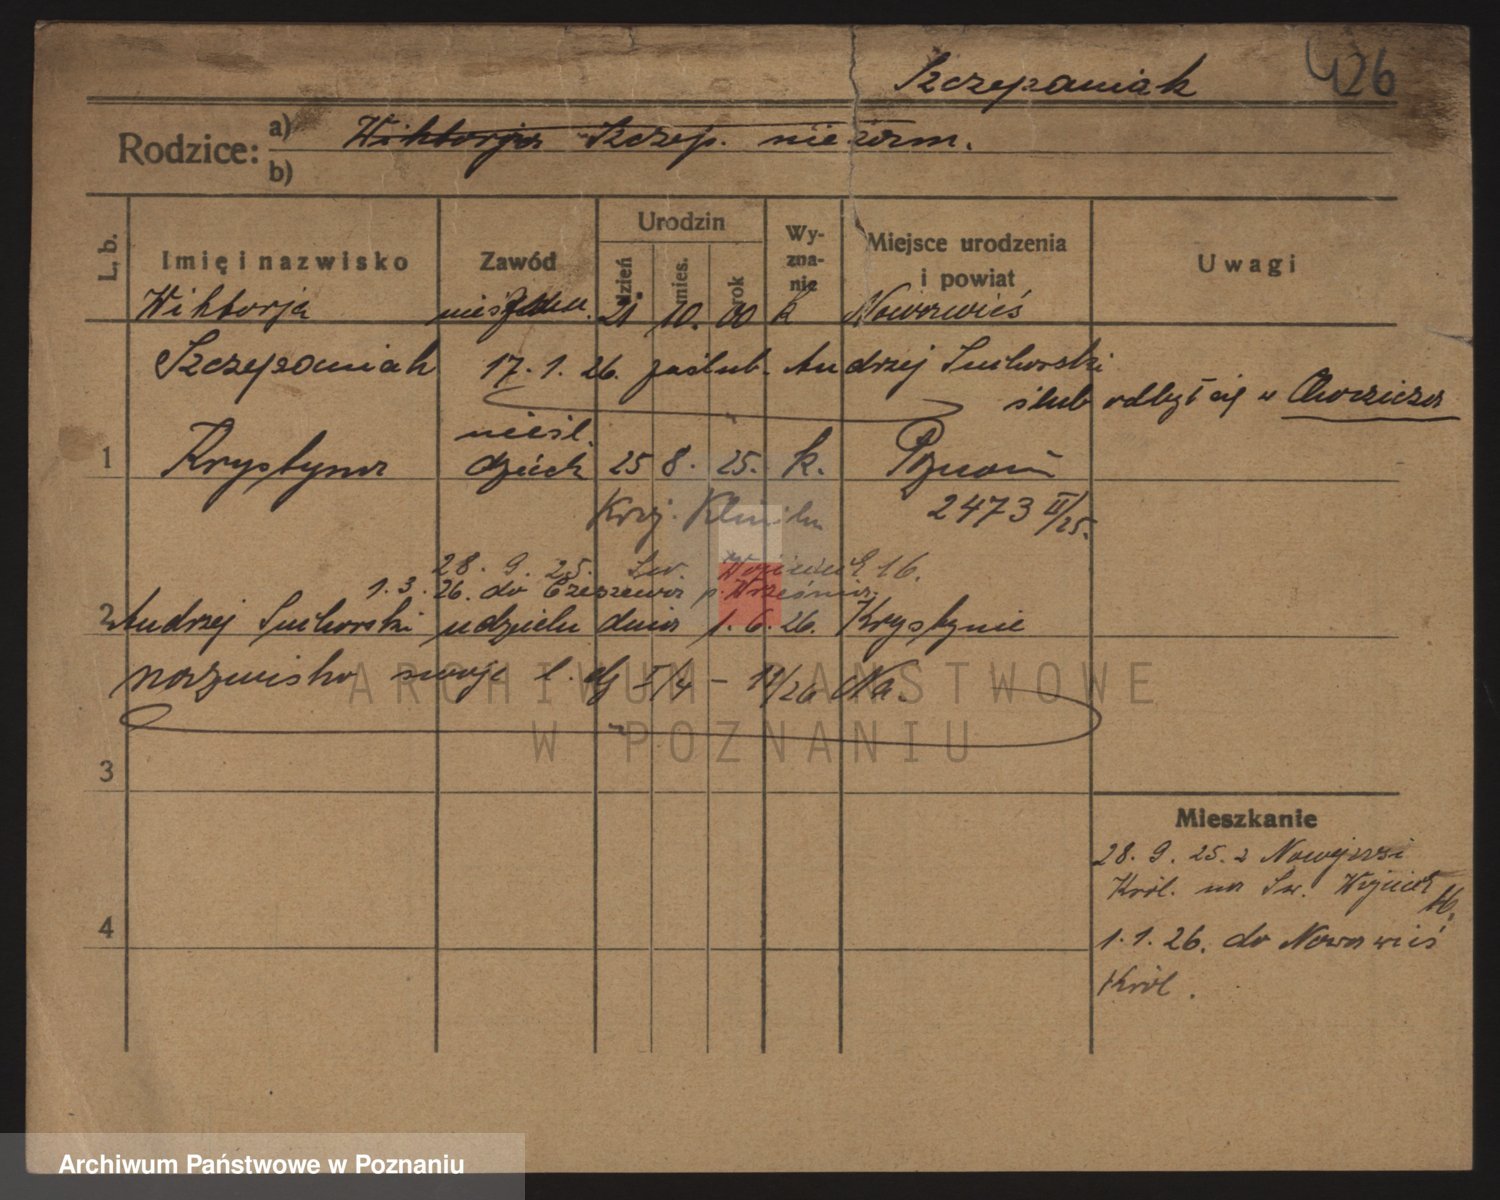 Szczepaniak
426
Rodzice:
a) Wiktorja Szczep. niezam.
b)
L. b.
Imię i nazwisko
Zawód
Urodzin
dzień
mies.
rok
Wy-
zna-
nie
Miejsce urodzenia
i powiat
Uwagi
Wiktorja 21. 10. 00 k Nowawieś
Szczepaniak 17. 1. 26. zaślub. Andrzej Suchorski
ślub odbył się w
nieśl.
1 Krystyna dzieck 25 8. 25. k. Poznań
Kraj. Klinika 2473 II/25.
28. 9. 25. Św. Wojciech 16.
1. 3. 26. do Czeszewa p. Września
2 Andrzej Suchorski udzielił dnia 1. 6. 26. Krystynie
nazwisko swoje l. dz I/4 - 19/26 Na.
3
4
Mieszkanie
28. 9. 25. z Nowejwsi
Król. na Św. Wojciech 16.
1. 1. 26. do Nowawieś
Król.
ARCHIWUM PAŃSTWOWE
W POZNANIU
Archiwum Państwowe w Poznaniu